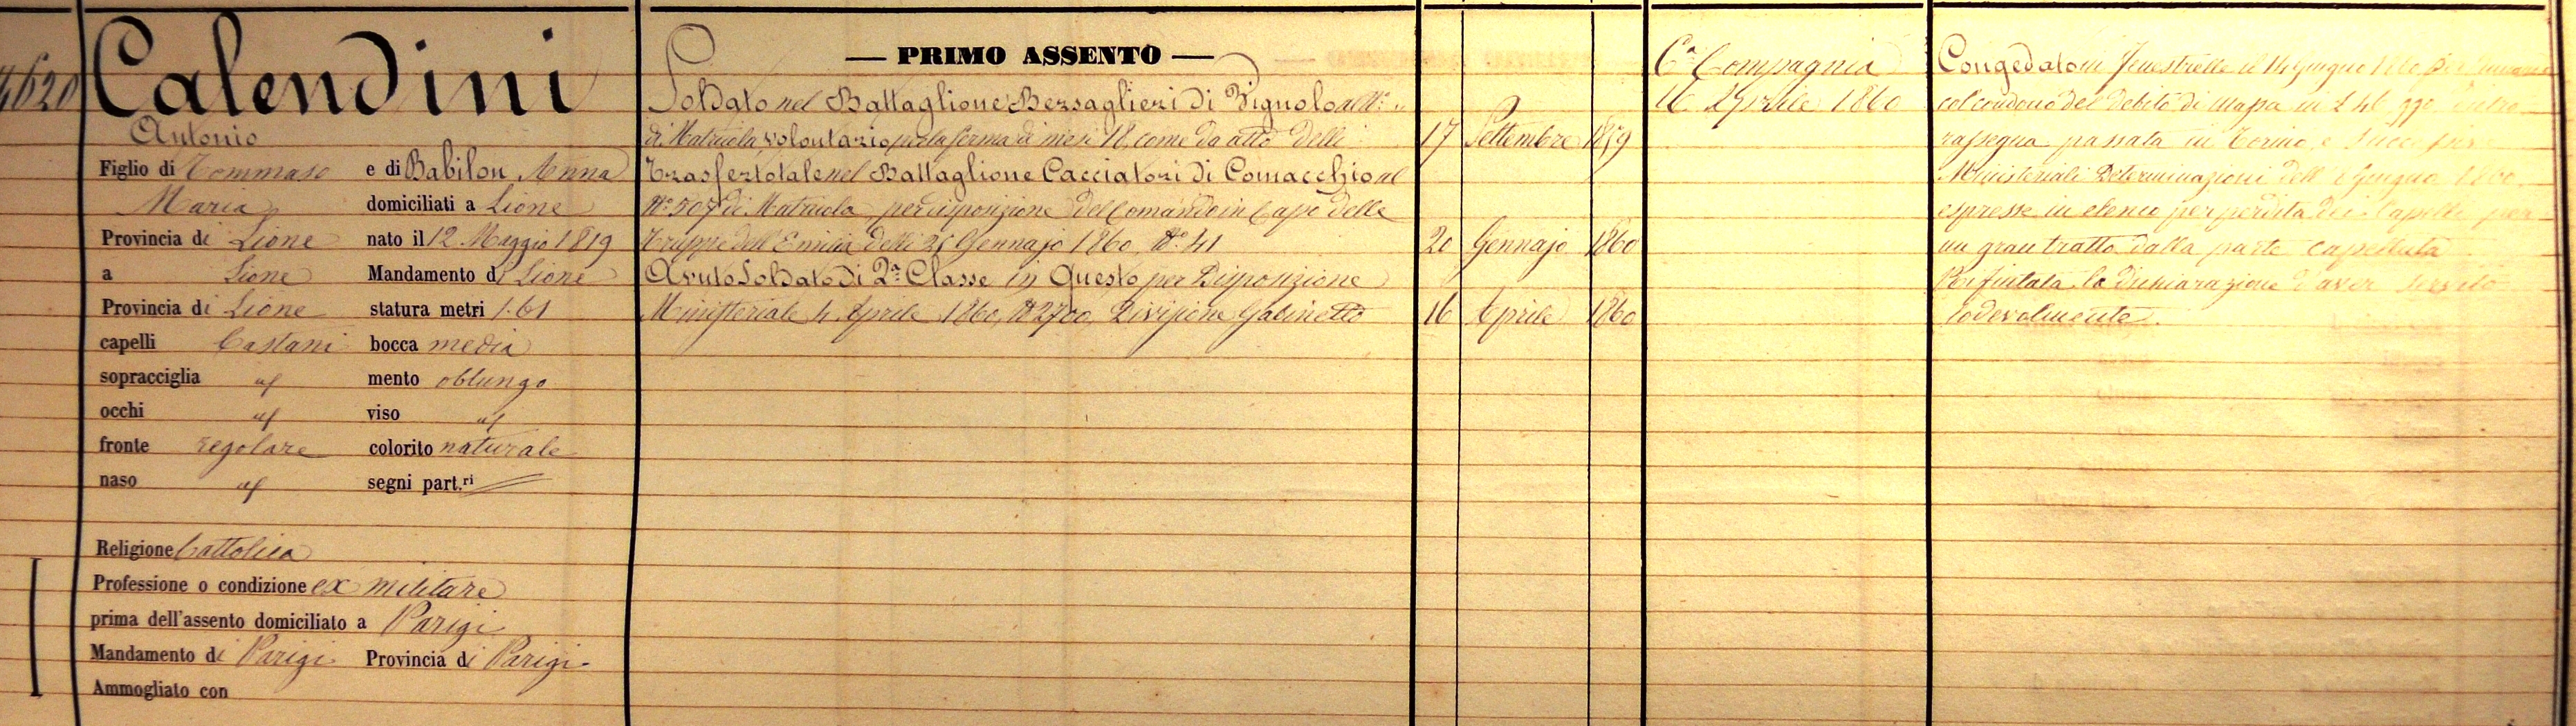 4620
Calendini
Antonio
Figlio di Tommaso e di Babilon Anna
Maria domiciliati a Lione
Provincia di Lione nato il 12 Maggio 1819
a Lione Mandamento di Lione
Provincia di Lione statura metri 1.61
capelli Castani bocca media
sopracciglia id mento oblungo
occhi id viso id
fronte regolare colorito naturale
naso id segni part.ri
Religione Cattolica
Professione o condizione ex militare
prima dell'assento domiciliato a Parigi
Mandamento di Parigi Provincia di Parigi
Ammogliato con
— PRIMO ASSENTO —
Soldato nel Battaglione Bersaglieri di Vignolo al N.°
di Matricola, volontario per la ferma di mesi 18, come da atto delli 17 Settembre 1859
Trasferto tale nel Battaglione Cacciatori di Comacchio al
N.° 507 di Matricola per disposizione del Comando in Capo delle
Truppe dell'Emilia delli Gennajo 1860, N.° 41 20 Gennajo 1860
Avuto Soldato di 2.a Classe in Questo per Disposizione
Ministeriale 4 Aprile 1860, N.° 2700, Divisione Gabinetto 16 Aprile 1860
6.a Compagnia
16 Aprile 1860
Congedato in Fenestrelle il 14 Giugno
col condono del debito di massa in £ 46 dietro
rassegna passata in Torino, e successive
Ministeriali Determinazioni dell' Giugno 1860
espresse in elenco per perdita dei Capelli per
un gran tratto dalla parte capelluta
Rifiutata la dichiarazione d'aver servito
lodevolmente.